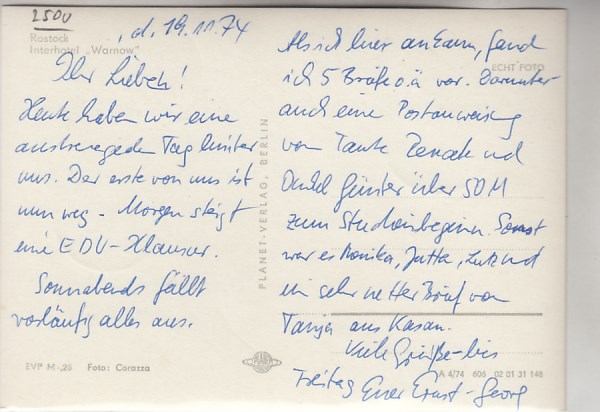 2500
Rostock
Interhotel „Warnow"
, d. 19.11.74
Ihr Lieben!
Heute haben wir eine
anstrengenden Tag hinter
uns. Der erste von uns ist
nun weg - Morgen steigt
eine EDV-Klausur.
Sonnabends fällt
vorläufig alles aus.
EVP M -,25 Foto: Corazza
PLANET-VERLAG, BERLIN
PLANET
ECHT FOTO
Als ich hier ankam, fand
ich 5 Briefe o.ä. vor. Darunter
auch eine Postanweisung
von Tante Renate und
Onkel Günter über 50 M
zum Studienbeginn. Sonst
war es Monika, Jutta, Lutz und
ein sehr netter Brief von
Tanja aus Kasan.
Viele Grüße - bis
Freitag Euer Ernst-Georg
A 4/74 606 02 01 31 148